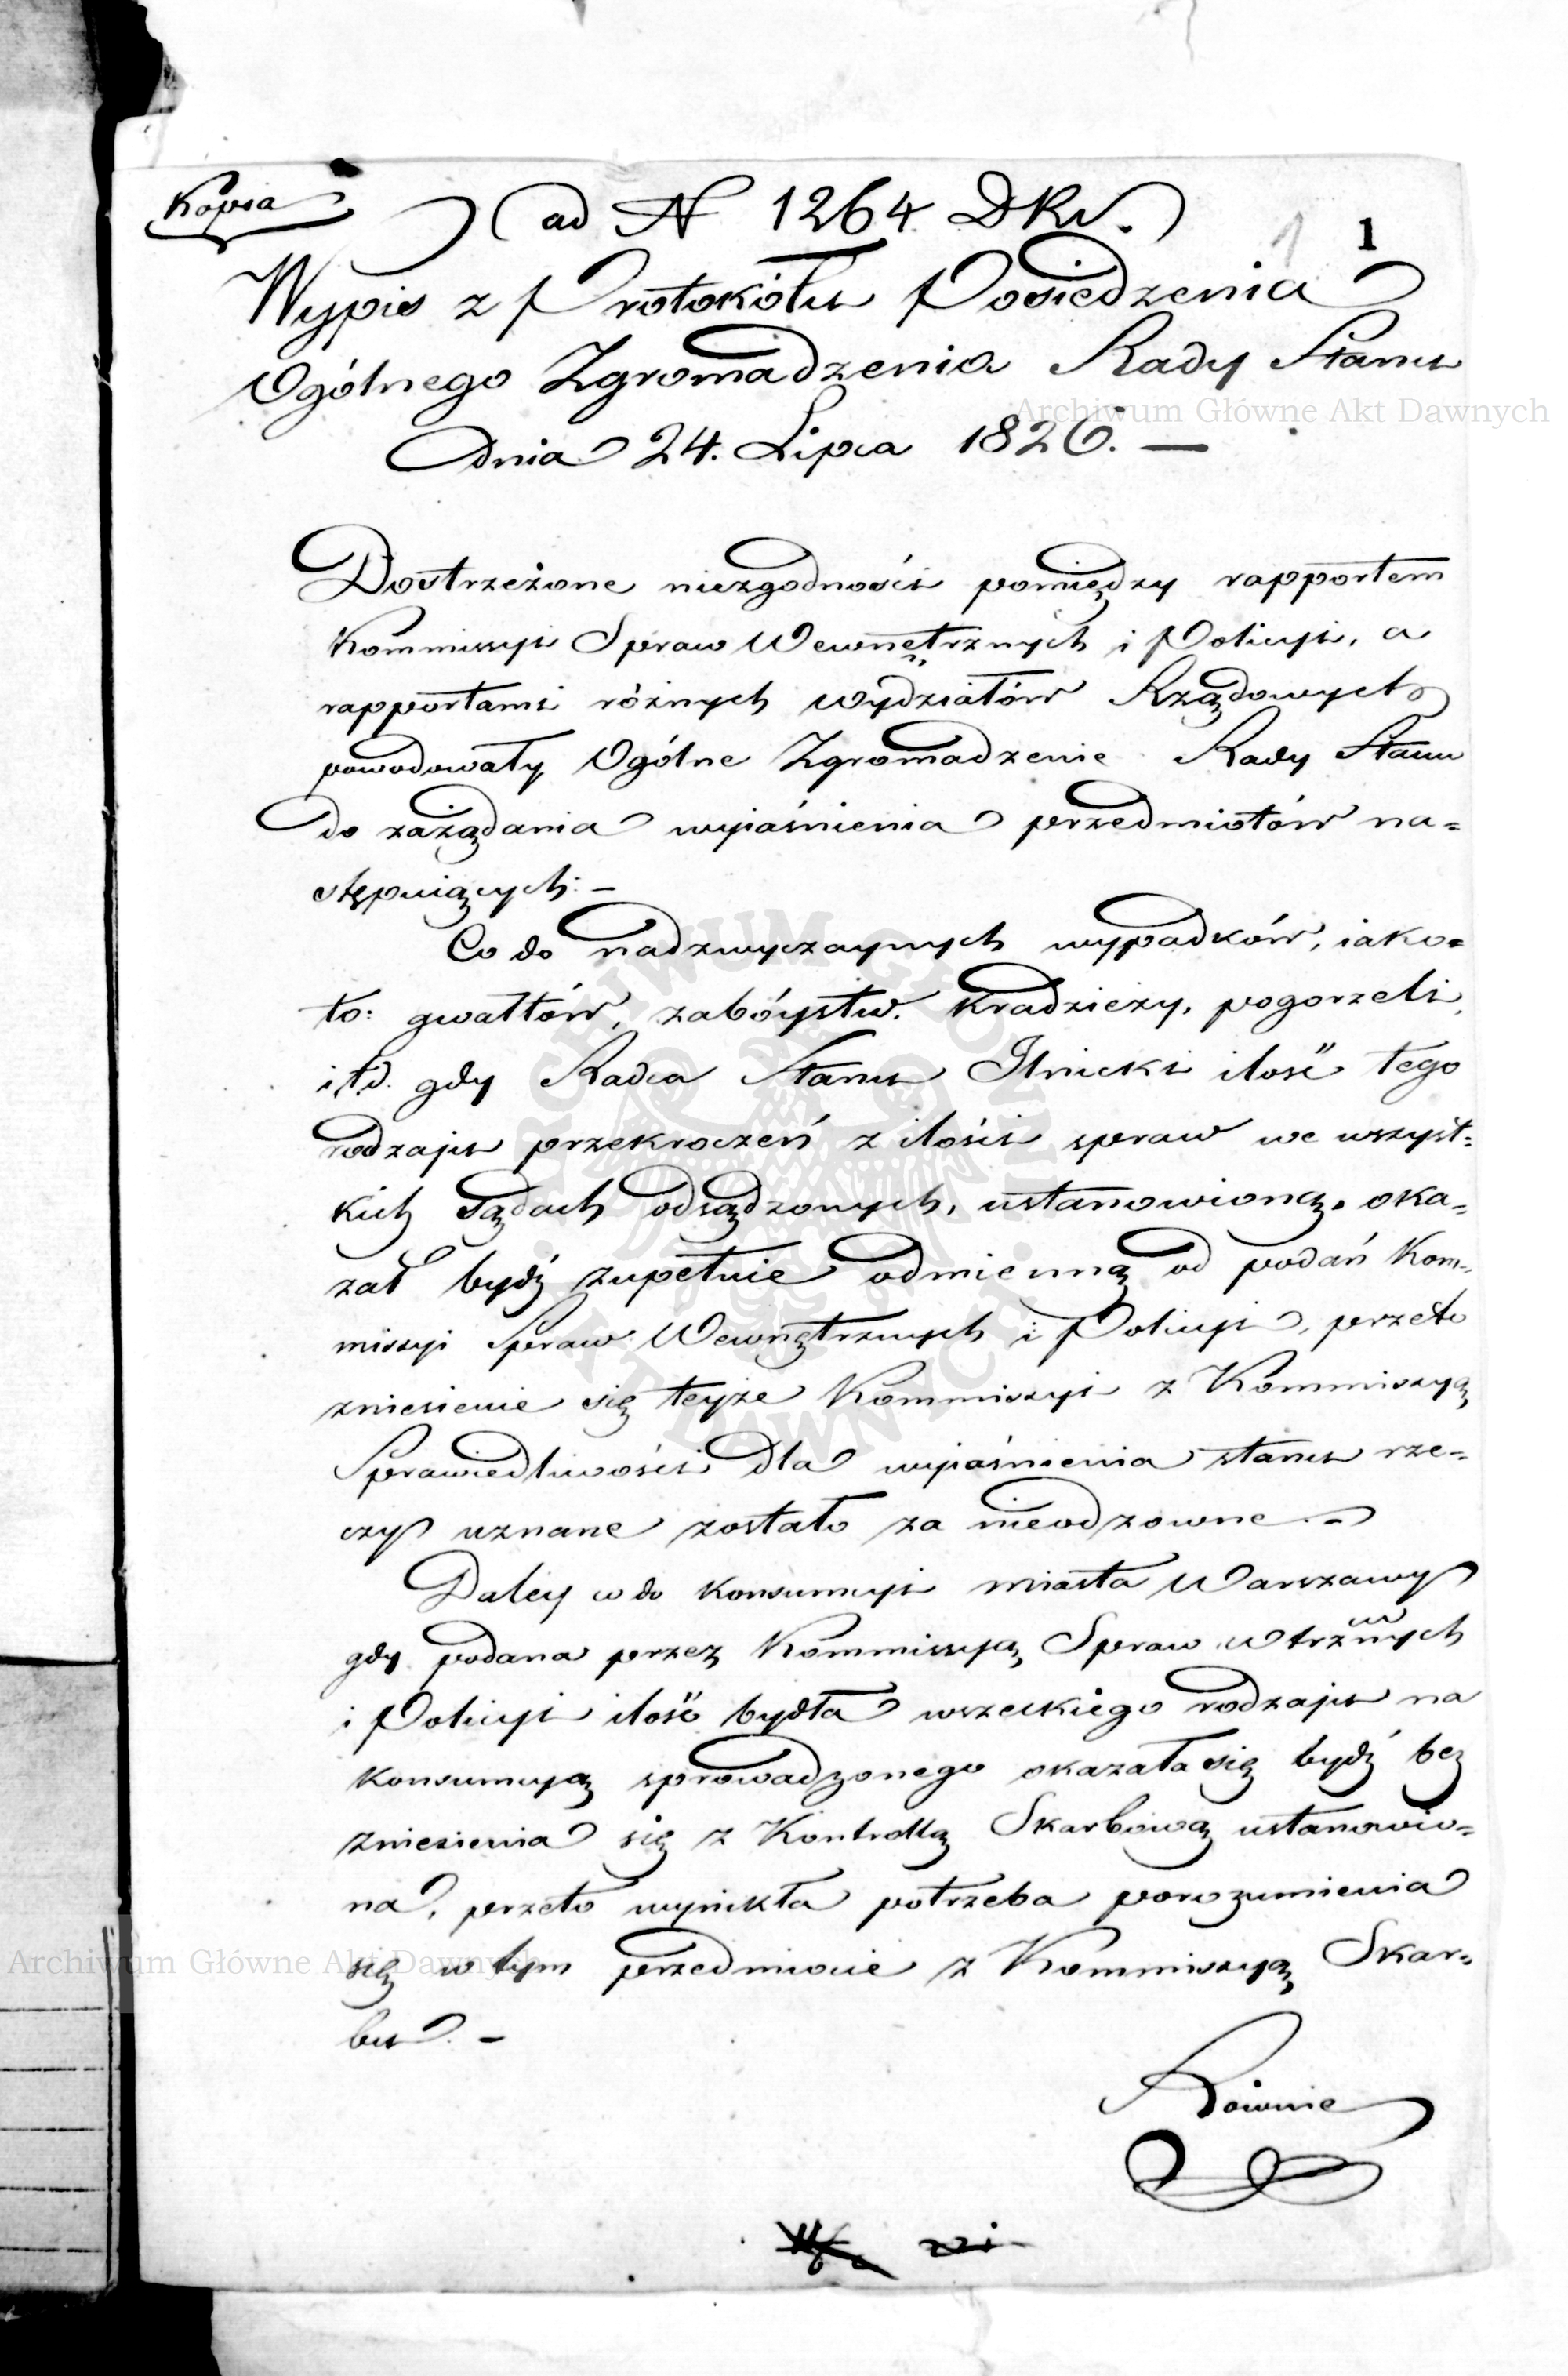 Kopia
(ad N 1264 DKv.)
1
1
Wypis z Protokółu Posiedzenia
Ogólnego Zgromadzenia Rady Stanu
dnia 24. Lipca 1826. —
Dostrzeżone niezgodności pomiędzy rapportem
Kommissyi Spraw Wewnętrznych i Policyi, a
rapportami różnych wydziałów Rządowych
powodowały Ogólne Zgromadzenie Rady Stanu
do zażądania wyiaśnienia przedmiotów na=
stępuiących: –
Co do nadzwyczaynych wypadków, iako=
to: gwałtów, zabóystw, kradzieży, pogorzeli,
i t.d. gdy Radca Stanu Ilnicki ilość tego
rodzaju przekroczeń z ilości spraw we wszyst=
kich Sądach odsądzonych, ustanowioną, oka=
zał bydź zupełnie odmienną od podań Kom=
missyi Spraw Wewnętrznych i Policyi, przeto
zniesienie się teyże Kommissyi z Kommissyą
Sprawiedliwości dla wyiaśnienia stanu rze=
czy uznane zostało za nieodzowne. –
Daley co do konsumcyi miasta Warszawy
gdy podana przez Kommissyą Spraw Wtrznych
i Policyi ilość bydła wszelkiego rodzaju na
konsumcyą sprowadzonego okazała się bydź bez
zniesienia się z Kontrollą Skarbową ustanowio=
na, przeto wynikła potrzeba porozumienia
się w tym przedmiocie z Kommissyą Skar=
bu. –
Równie
Archiwum Główne Akt Dawnych
Archiwum Główne Akt Dawnych
ARCHIWUM GŁÓWNE AKT DAWNYCH